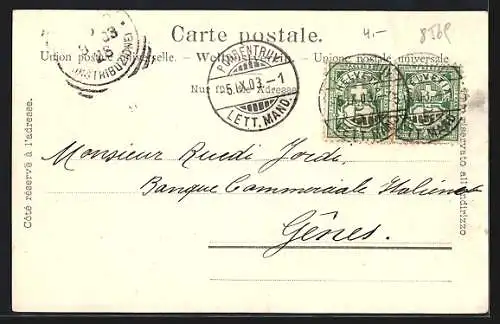 Carte postale.
4.-
8569
Union postale universelle. — Weltpostverein. — Unione postale universale
Nur für die Adresse.
PORRENTRUY
5.IX.03.–1
LETT. MAND.
(DISTRIBUZIONE)
HELVETIA
HELVETIA
Côté réservé à l'adresse.
riservato all'indirizzo
Monsieur Ruedi Jordi
Banque Commerciale Italienne
Gênes.